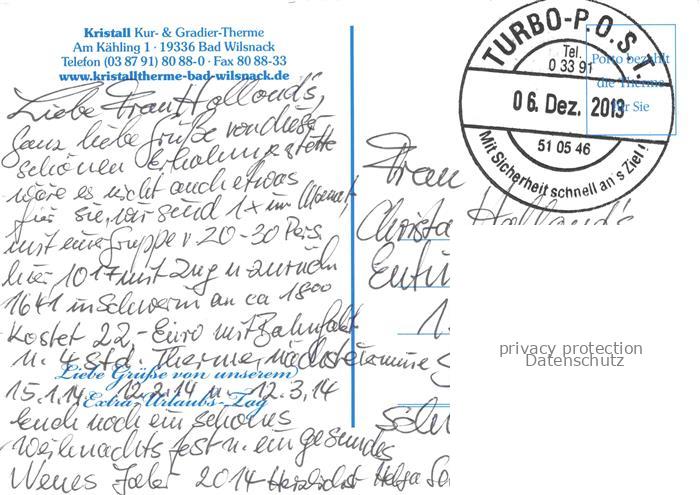 Kristall Kur- & Gradier-Therme
Am Kähling 1 · 19336 Bad Wilsnack
Telefon (03 87 91) 80 88-0 · Fax 80 88-33
www.kristalltherme-bad-wilsnack.de
Liebe Frau Hollands,
Ganz liebe Grüße von dieser
schönen Erholungsstätte
wäre es nicht auch etwas
für Sie, wir sind 1x im Monat
mit einer Gruppe v 20-30 Pers.
hier 1017 mit Zug u zurück
1641 in Schwerin an ca 1800
Kostet 22,- Euro mit Bahnfahrt
u. 4 Std. Therme, nächste Termine
Liebe Grüße von meinem
15.1.14, 12.2.14 u. 12.3.14
Extra-Urlaubs-Tag
Euch noch ein schönes
Weihnachtsfest u. ein gesundes
Neues Jahr 2014 Herzlichst Helga
TURBO-P.O.S.T.
Tel.
0 33 91
06. Dez. 2013
51 05 46
Mit Sicherheit schnell an's Ziel!
Porto bezahlt
die Therme
für Sie
Frau
Christa Hollands
privacy protection
Datenschutz